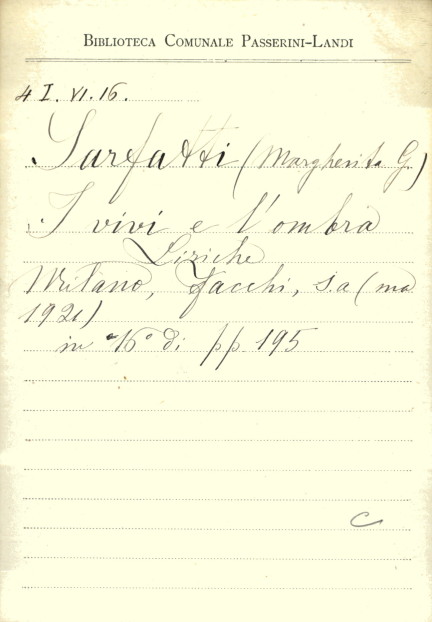 BIBLIOTECA COMUNALE PASSERINI-LANDI
4 I. VI. 16.
Sarfatti (Margherita G.)
I vivi e l'ombra
Liriche
Milano, Facchi, s.a (ma
1921)
in 16° di pp. 195
C